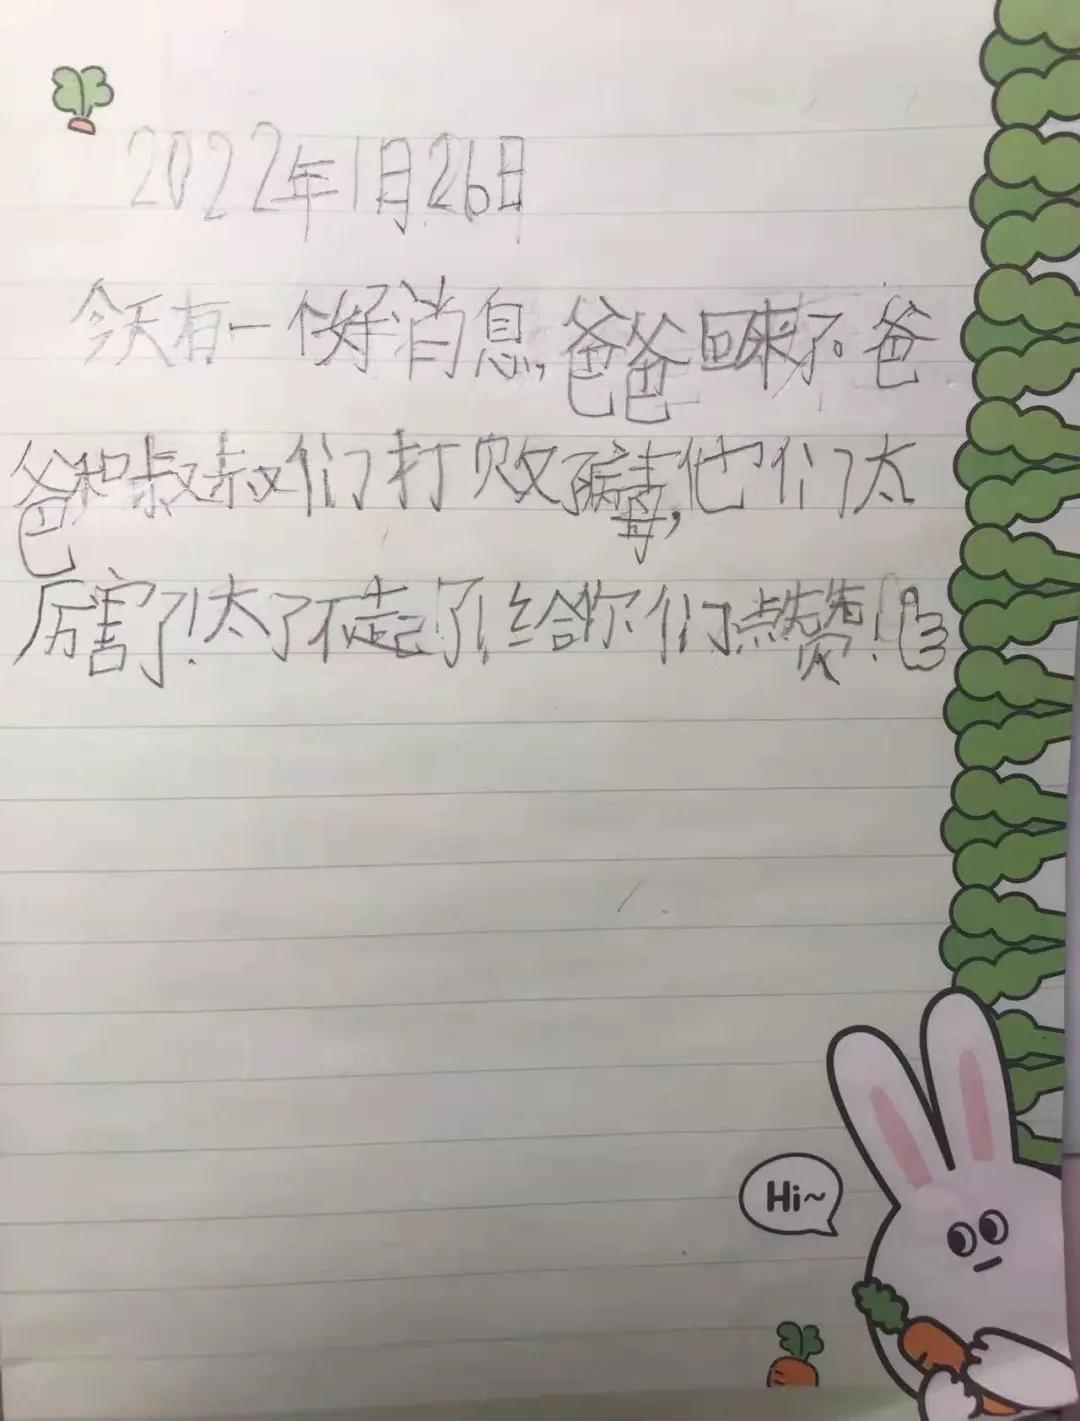 2022年1月26日
今天有一个好消息,爸爸回来了。爸
爸和叔叔们打败了病毒,他们太
厉害了!太了不起了!给你们点赞!
Hi~